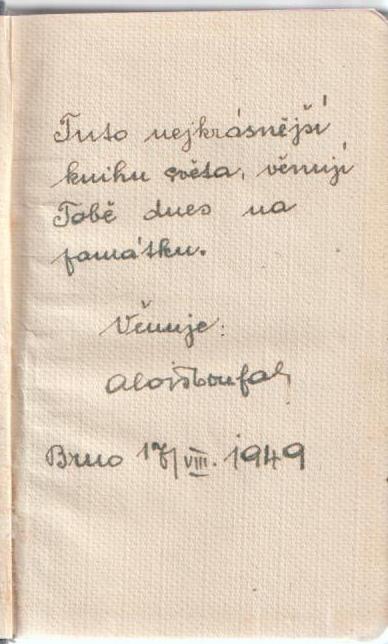 Tuto nejkrásnější
knihu světa, věnuji
Tobě dnes na
památku.
Věnuje:
Alois Doufal
Brno 17/VIII. 1949